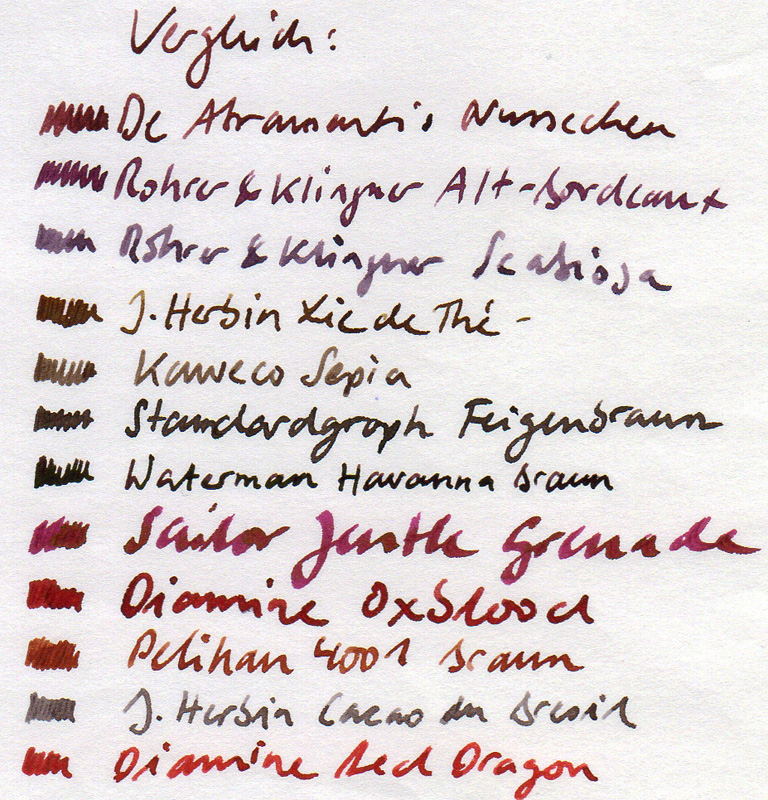 Vergleich:
De Atramentis Nussecken
Rohrer & Klingner Alt-Bordeaux
Rohrer & Klingner Scabiosa
J. Herbin Lie de Thé -
Kaweco Sepia
Standardgraph Feigenbraun
Waterman Havanna Braun
Sailor Jentle Grenade
Diamine Oxblood
Pelikan 4001 Braun
J. Herbin Cacao du Bresil
Diamine Red Dragon